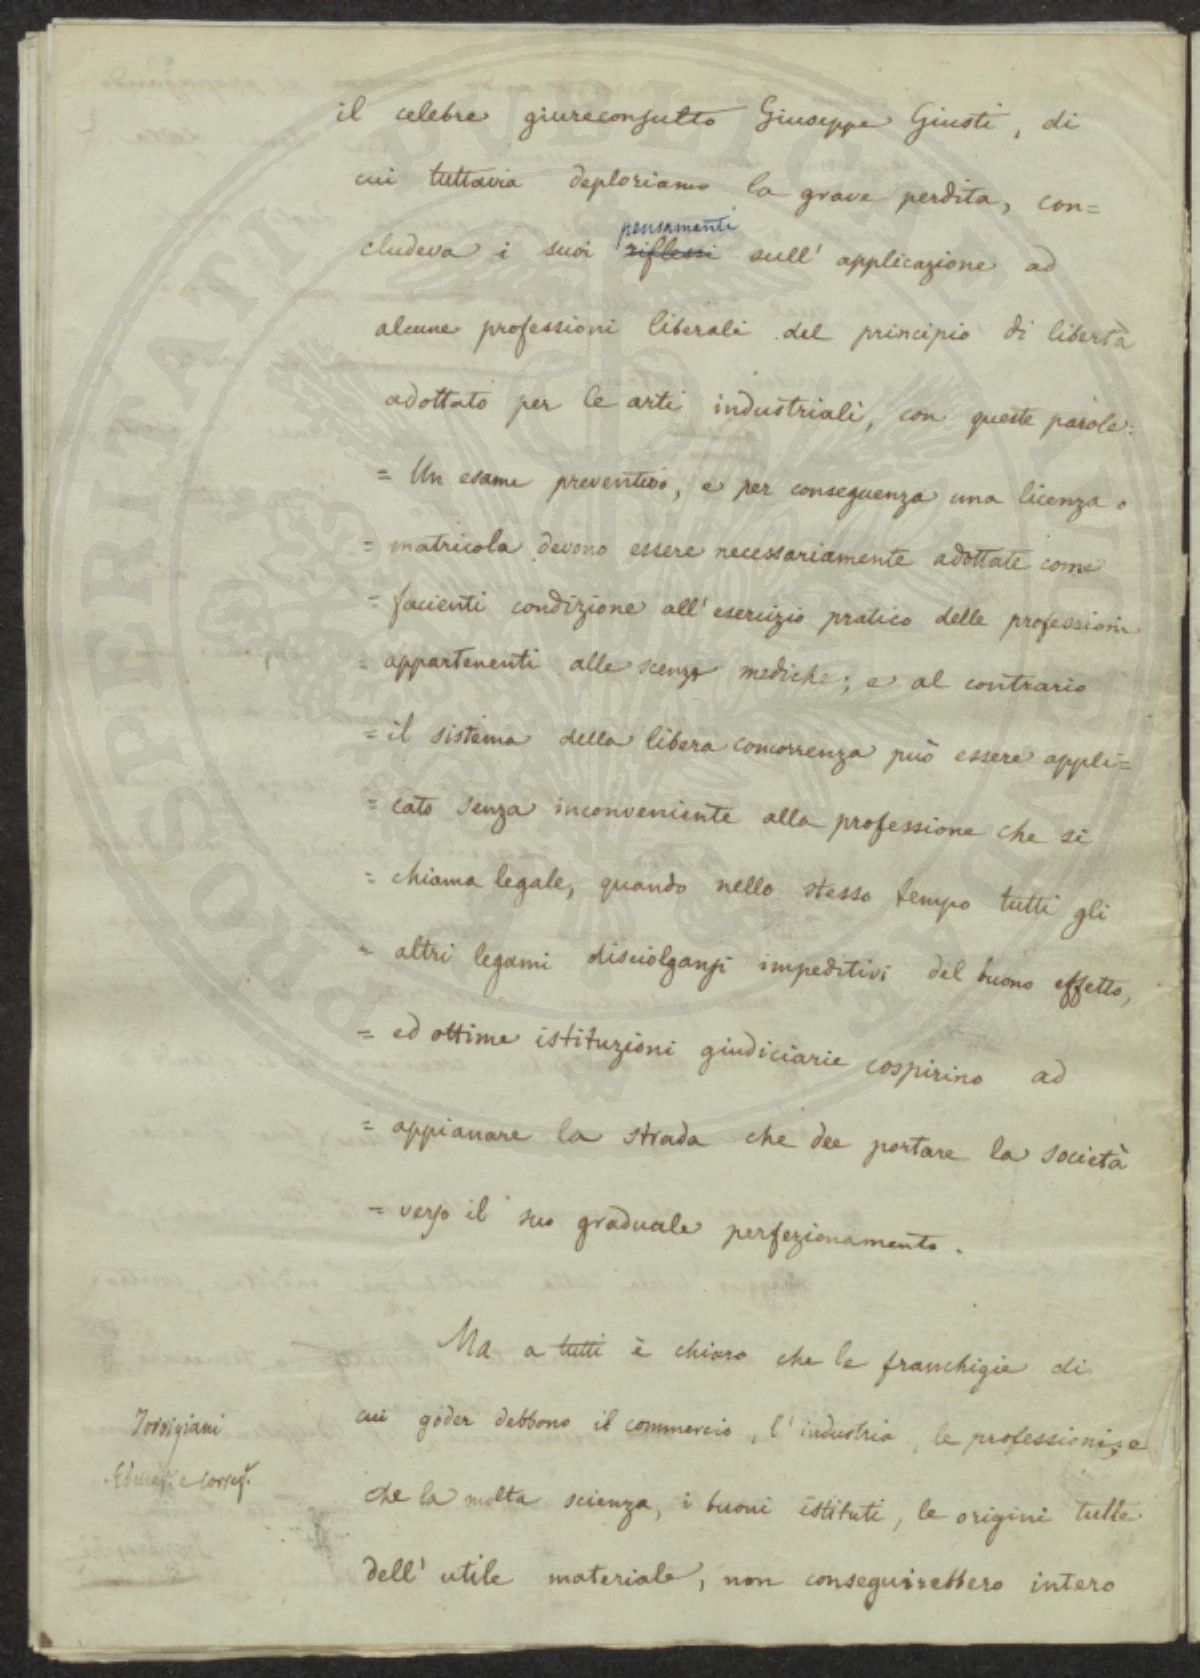 il celebre giureconsulto Giuseppe Giusti, di
cui tuttavia deploriamo la grave perdita, con=
pensamenti
cludeva i suoi riflessi sull' applicazione ad
alcune professioni liberali del principio di libertà
adottato per le arti industriali, con queste parole:
= Un esame preventivo, e per conseguenza una licenza o
= matricola devono essere necessariamente adottate come
= facienti condizione all' esercizio pratico delle professioni
= appartenenti alle scenze mediche; e al contrario
= il sistema della libera concorrenza può essere appli=
= cato senza inconveniente alla professione che si
= chiama legale, quando nello stesso tempo tutti gli
= altri legami disciolgansi impeditivi del buono effetto,
= ed ottime istituzioni giudiciarie cospirino ad
= appianare la strada che dee portare la società
= verso il suo graduale perfezionamento.
Ma a tutti è chiaro che le franchigie di
cui goder debbono il commercio, l' industria, le professioni, e
che la molta scienza, i buoni istituti, le origini tutte
dell' utile materiale, non conseguirebbero intero
Torrigiani
e correz.
PROSPERITATI PUBLICAE